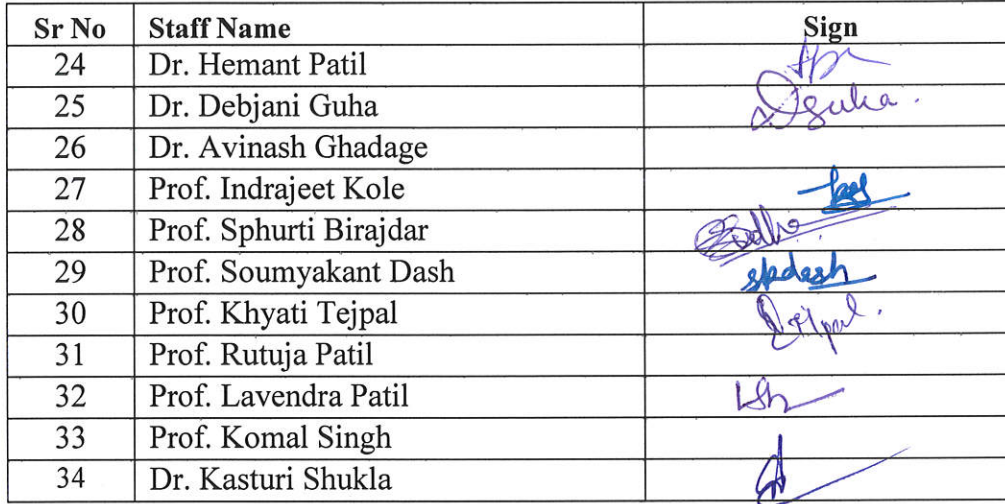 Sr No Staff Name Sign
24 Dr. Hemant Patil
25 Dr. Debjani Guha Dguha.
26 Dr. Avinash Ghadage
27 Prof. Indrajeet Kole
28 Prof. Sphurti Birajdar
29 Prof. Soumyakant Dash skdash
30 Prof. Khyati Tejpal
31 Prof. Rutuja Patil
32 Prof. Lavendra Patil
33 Prof. Komal Singh
34 Dr. Kasturi Shukla